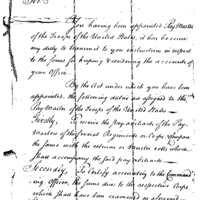 Sir
You having been appointed Pay Master
of the Troops of the United States, it has become
my duty to transmit to you instructions in respect
to the forms for keeping & rendering the accounts of
your Office.
By the Act under which you have been
appointed, the following duties are assigned to the
Pay Master of the Troops of the United States.
Firstly. To receive the pay abstracts of the Pay
Masters of the different Regiments or Corps & compare
the same with the returns or Muster rolls which
shall accompany the said pay abstracts.
Secondly. To Certify accounts to the Command
ing Officer, the sums due to the respective Corps
which shall have been examined as aforesaid